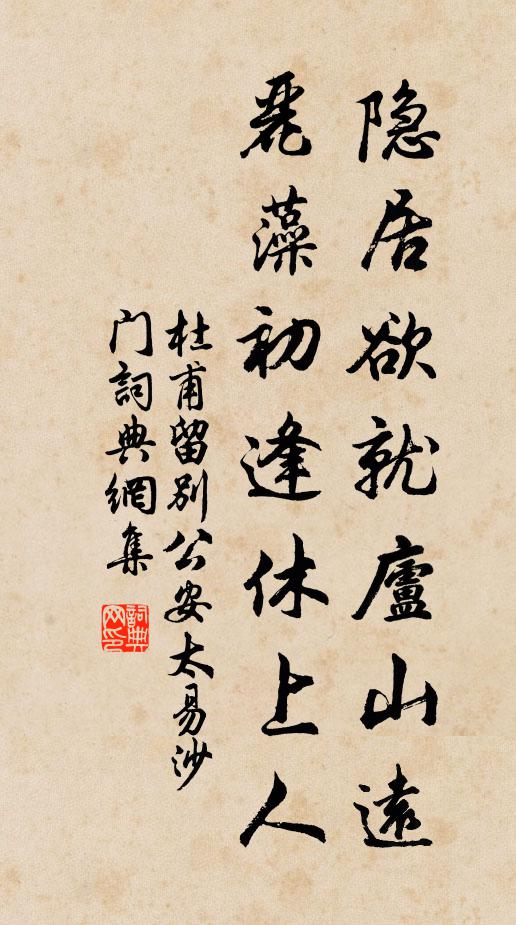 隐居欲就廬山遠
麗藻初逢休上人
杜甫留别公安太易沙
门詞典網集
詞典
网印